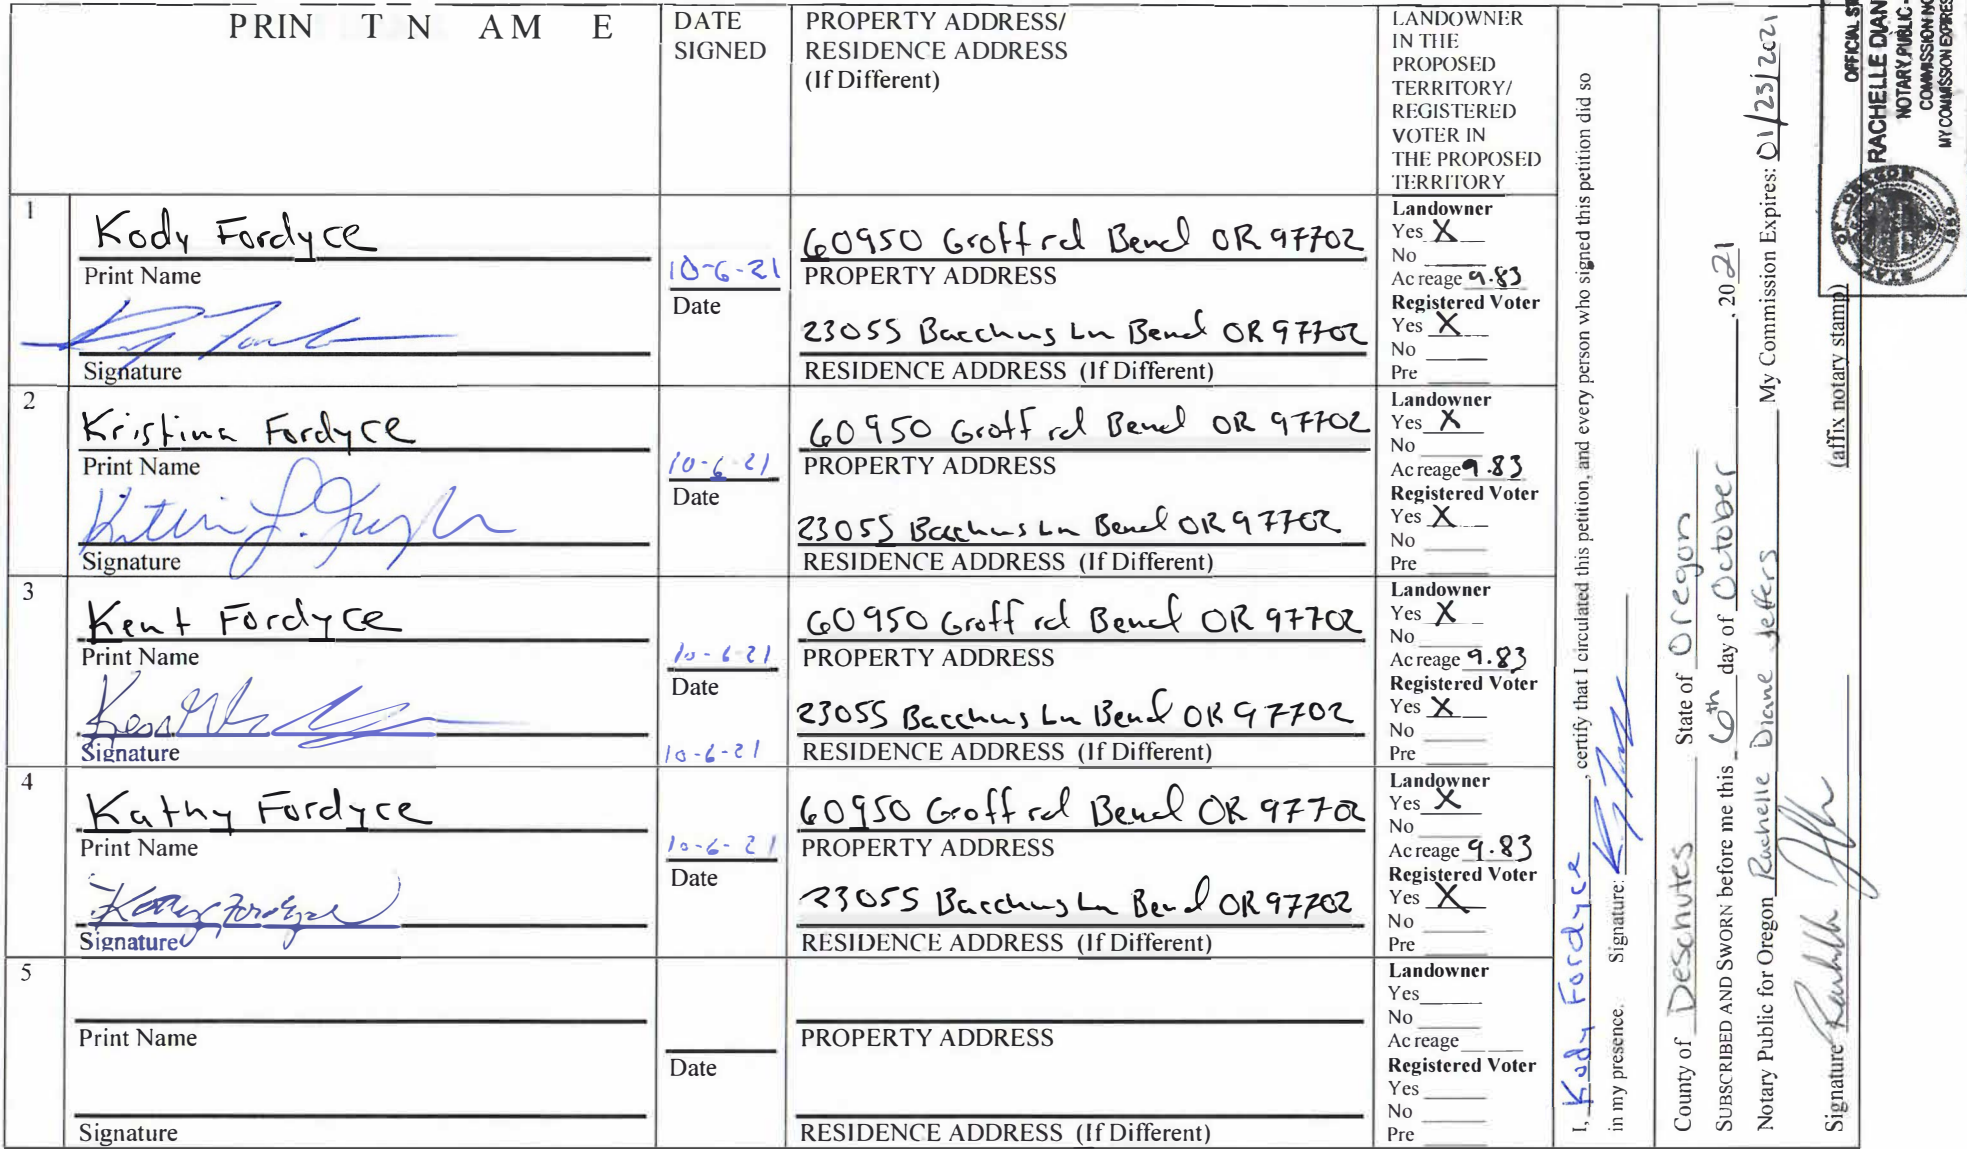 PRIN T N AM E
DATE
SIGNED
PROPERTY ADDRESS/
RESIDENCE ADDRESS
(If Different)
LANDOWNER
IN THE
PROPOSED
TERRITORY/
REGISTERED
VOTER IN
THE PROPOSED
TERRITORY
1
Kody Fordyce
Print Name
Signature
10-6-21
Date
60950 Groff rd Bend OR 97702
PROPERTY ADDRESS
23055 Bacchus Ln Bend OR 97702
RESIDENCE ADDRESS (If Different)
Landowner
Yes X
No
Ac reage 9.83
Registered Voter
Yes X
No
Pre
2
Kristina Fordyce
Print Name
Signature
10-6-21
Date
60950 Groff rd Bend OR 97702
PROPERTY ADDRESS
23055 Bacchus Ln Bend OR 97702
RESIDENCE ADDRESS (If Different)
Landowner
Yes X
No
Ac reage 9.83
Registered Voter
Yes X
No
Pre
3
Kent Fordyce
Print Name
Signature
10-6-21
Date
10-6-21
60950 Groff rd Bend OR 97702
PROPERTY ADDRESS
23055 Bacchus Ln Bend OR 97702
RESIDENCE ADDRESS (If Different)
Landowner
Yes X
No
Ac reage 9.83
Registered Voter
Yes X
No
Pre
4
Kathy Fordyce
Print Name
Kathy Fordyce
Signature
10-6-21
Date
60950 Groff rd Bend OR 97702
PROPERTY ADDRESS
23055 Bacchus Ln Bend OR 97702
RESIDENCE ADDRESS (If Different)
Landowner
Yes X
No
Ac reage 9.83
Registered Voter
Yes X
No
Pre
5
Print Name
Signature
Date
PROPERTY ADDRESS
RESIDENCE ADDRESS (If Different)
Landowner
Yes
No
Ac reage
Registered Voter
Yes
No
Pre
I, Kody Fordyce, certify that I circulated this petition, and every person who signed this petition did so
in my presence. Signature:
County of Deschutes State of Oregon
SUBSCRIBED AND SWORN before me this 6th day of October, 2021
Notary Public for Oregon Rachelle Diane Jeffers My Commission Expires: 01/23/2021
Signature (affix notary stamp)
OFFICIAL ST
RACHELLE DIAN
NOTARY PUBLIC -
COMMISSION NO
MY COMMISSION EXPIRES
STATE OF OREGON
1859